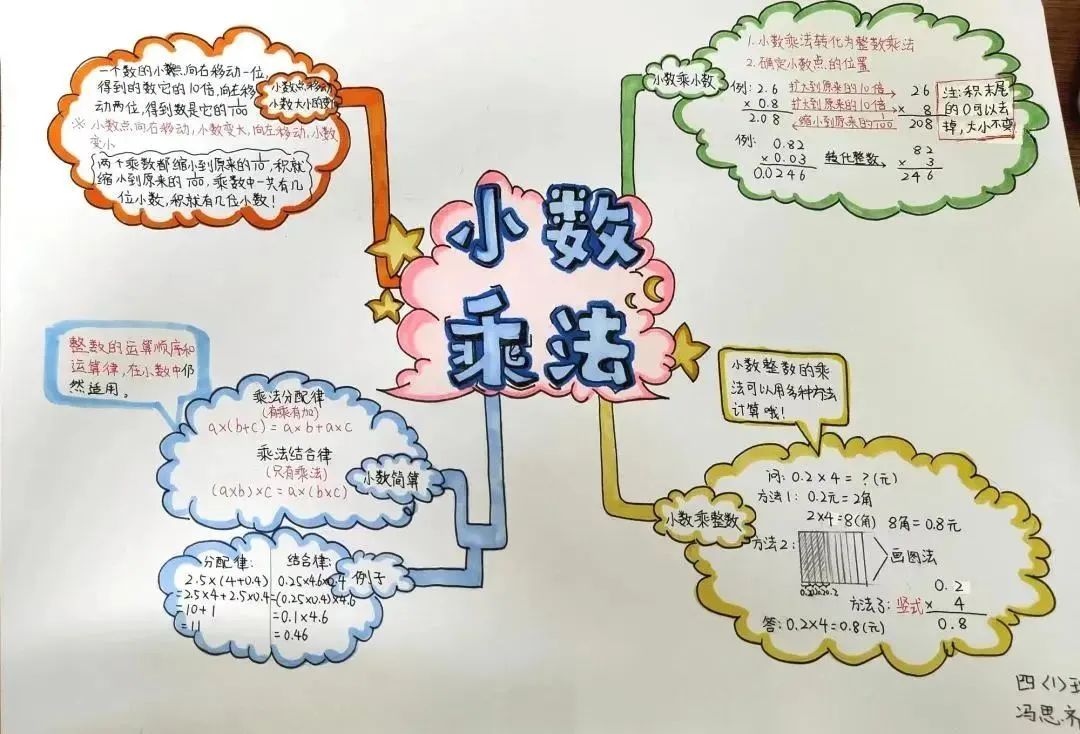 小数
乘法
小数点移动
小数大小的变
一个数的小数点向右移动一位,
得到的数它的10倍,向左移
动两位,得到数是它的1/100
※ 小数点向右移动,小数变大,向左移动,小数
变小
两个乘数都缩小到原来的1/10,积就
缩小到原来的1/100,乘数中一共有几
位小数,积就有几位小数!
小数乘小数
1.小数乘法转化为整数乘法
2.确定小数点的位置
例: 2.6 扩大到原来的10倍 26
× 0.8 扩大到原来的10倍 × 8
2.08 缩小到原来的1/100 208
注:积末尾
的0可以去
掉,大小不变
例: 0.82 82
× 0.03 转化整数 × 3
0.0246 246
整数的运算顺序和
运算律,在小数中仍
然适用。
小数简算
乘法分配律
(有乘有加)
a×(b+c)=a×b+a×c
乘法结合律
(只有乘法)
(a×b)×c=a×(b×c)
例子
分配律:
2.5×(4+0.4)
=2.5×4+2.5×0.4
=10+1
=11
结合律:
0.25×4.6×0.4
=(0.25×0.4)×4.6
=0.1×4.6
=0.46
小数整数的乘
法可以用多种方法
计算哦!
小数乘整数
问:0.2×4=?(元)
方法1:0.2元=2角
2×4=8(角) 8角=0.8元
方法2: 画图法
0.2
方法3:竖式 × 4
0.8
答:0.2×4=0.8(元)
四(1)
冯思齐